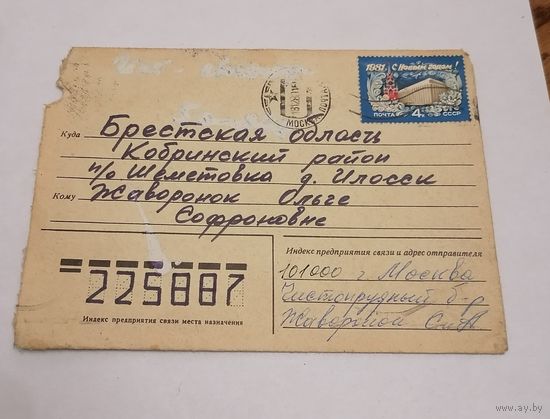 1981 С Новым годом!
ПОЧТА 4к СССР
МОСКВА
Куда Брестская область
Кобринский район
п/о Шеметовка д. Илосск
Кому Жаворонок Ольге
Софроновне
Индекс предприятия связи и адрес отправителя
101000 г Москва
Чистопрудный б-р
Жаворонок
225887
Индекс предприятия связи места назначения
www.ay.by